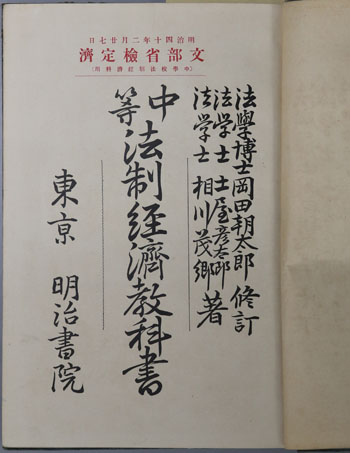 明治四十年二月廿七日
文部省檢定濟
(中學校法制經濟科用)
法學博士岡田朝太郎 修訂
法学士 土屋彦太郎
法学士 相川茂郷 著
中等法制經濟教科書
東京 明治書院